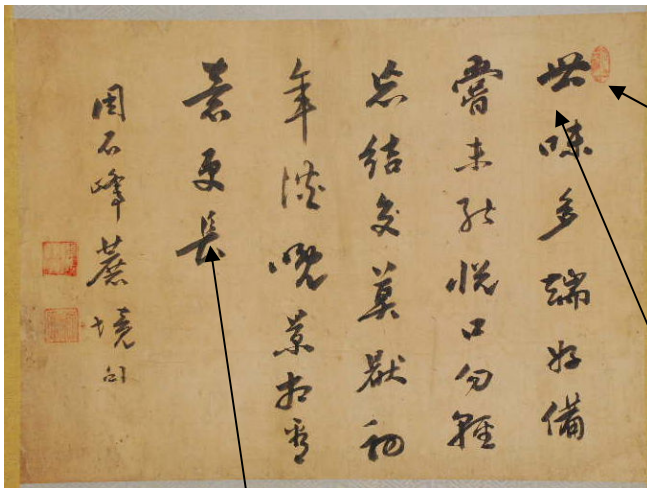 世味多端好備
嘗未能悦口勿輕
忘結交莫厭初
年淡晩景相看
意更長
周石峰蔗境句